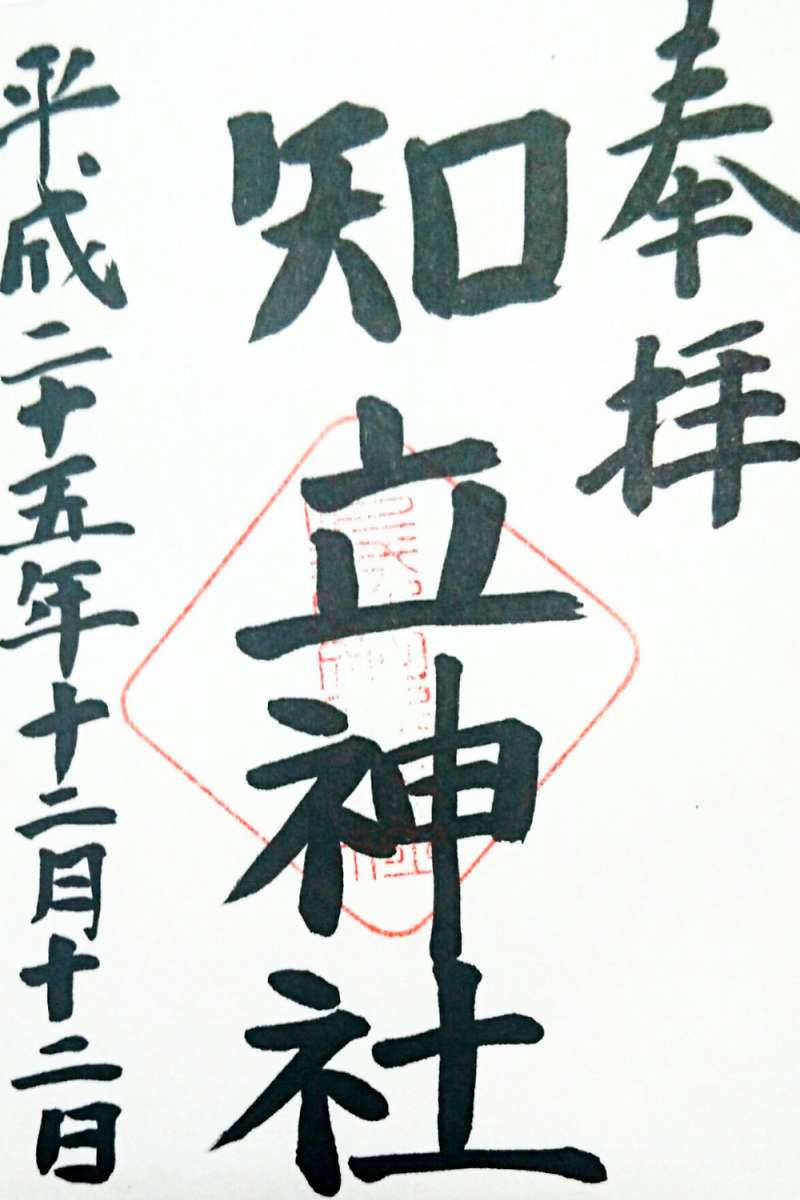 奉拝
知立神社
平成二十五年十二月十二日